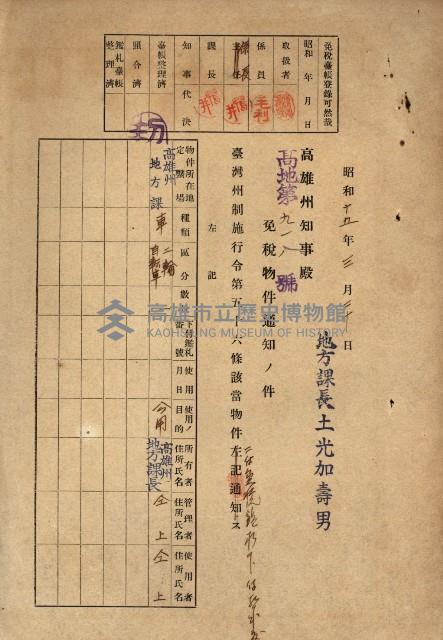 昭和十五年三月三十日
地方課長土光加壽男
高雄州知事殿
高地第九一八號
免稅物件通知ノ件
臺灣州制施行令第五十六條該當物件左記通知ス
左記
免稅臺帳登錄可然哉
昭和 年 月 日
取扱者
係員
毛利
係長
課長
知事代決
臺帳整理濟
照合濟
鑑札臺帳整理濟
物件所在地
定置場
種類
區分
數
下付鑑札番號
使用月日
使用ノ目的
所有者住所氏名
管理者住所氏名
使用者住所氏名
高雄州地方課
車
二輪自轉車
公用
高雄州地方課長
仝上
仝上
高雄市立歷史博物館
KAOHSIUNG MUSEUM OF HISTORY